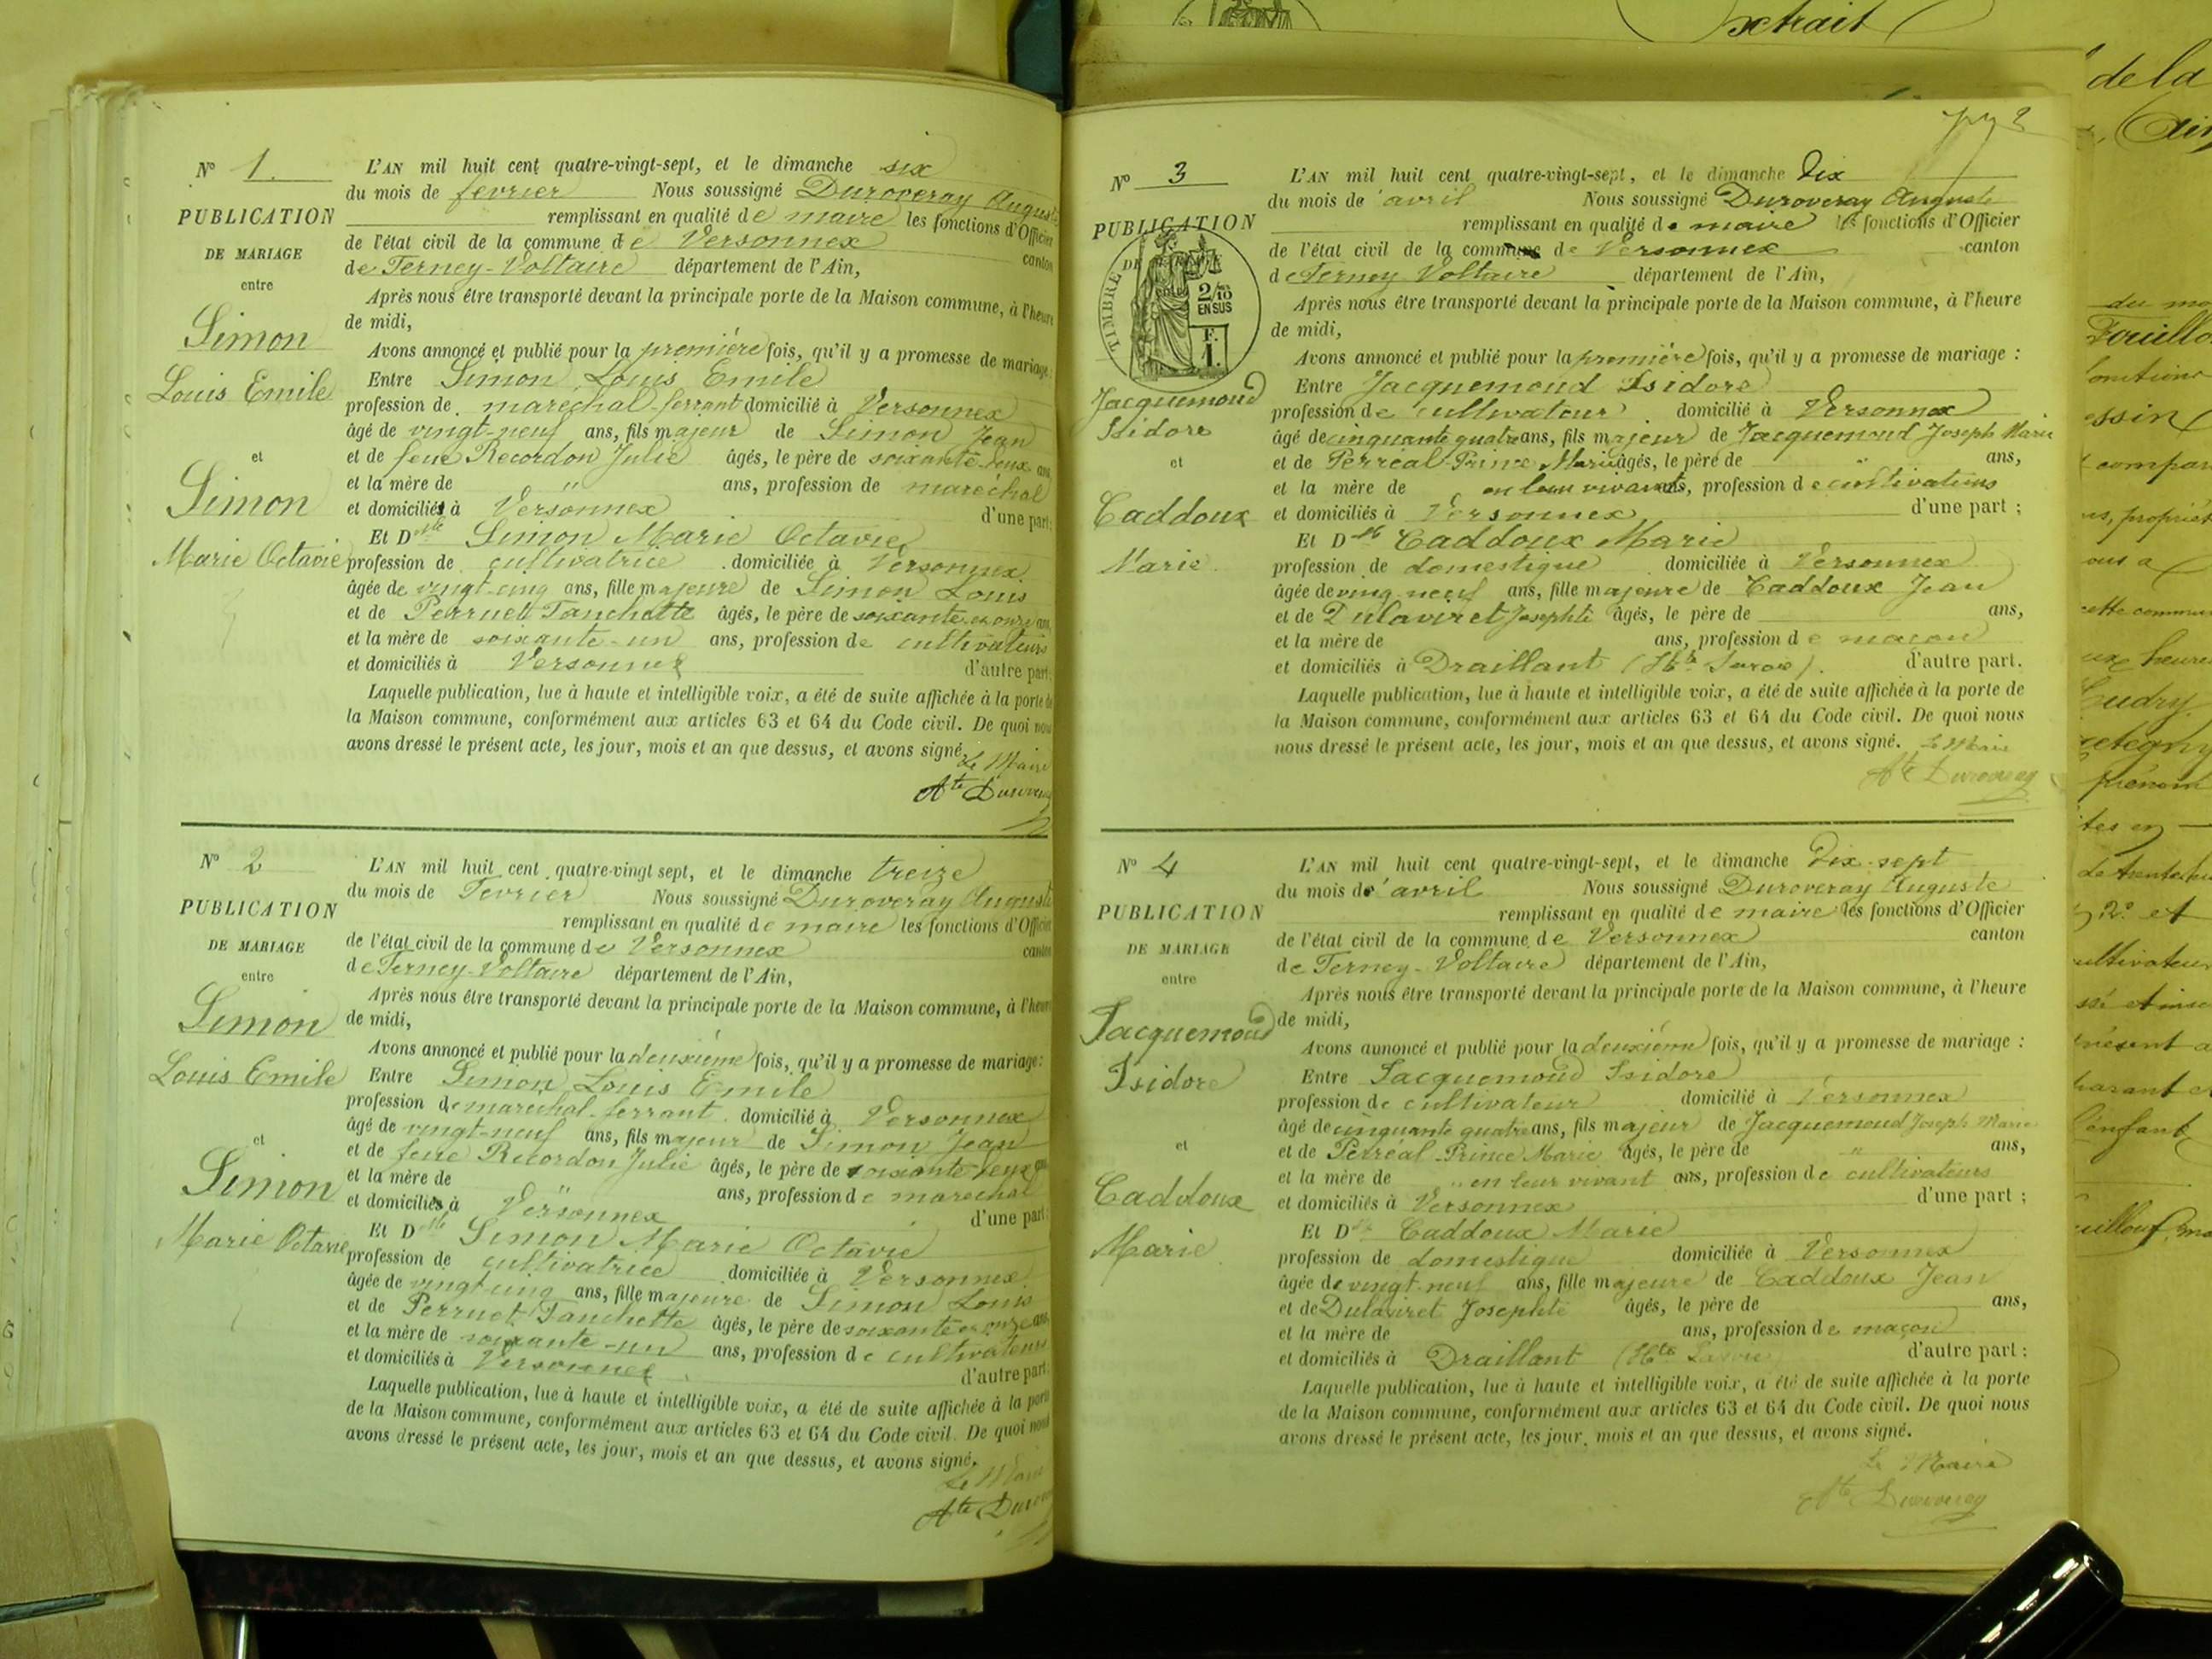 Nº 1.
PUBLICATION
DE MARIAGE
entre
Simon
Louis Emile
et
Simon
Marie Octavie
L'AN mil huit cent quatre-vingt-sept, et le dimanche six
du mois de février Nous soussigné Duroveray Auguste
remplissant en qualité de maire les fonctions d'Officier
de l'état civil de la commune de Versonnex canton
de Ferney-Voltaire département de l'Ain,
Après nous être transporté devant la principale porte de la Maison commune, à l'heure
de midi,
Avons annoncé et publié pour la première fois, qu'il y a promesse de mariage:
Entre Simon Louis Emile
profession de maréchal-ferrant domicilié à Versonnex
âgé de vingt-neuf ans, fils majeur de Simon Jean
et de feue Recordon Julie âgés, le père de soixante-deux ans
et la mère de " ans, profession de maréchal
et domiciliés à Versonnex d'une part;
Et Dlle Simon Marie Octavie
profession de cultivatrice domiciliée à Versonnex
âgée de vingt-cinq ans, fille majeure de Simon Louis
et de Perruet Fanchette âgés, le père de soixante et onze ans
et la mère de soixante-un ans, profession de cultivateurs
et domiciliés à Versonnex d'autre part;
Laquelle publication, lue à haute et intelligible voix, a été de suite affichée à la porte de
la Maison commune, conformément aux articles 63 et 64 du Code civil. De quoi nous
avons dressé le présent acte, les jour, mois et an que dessus, et avons signé.
Le Maire
Ate Duroveray
Nº 2
PUBLICATION
DE MARIAGE
entre
Simon
Louis Emile
et
Simon
Marie Octavie
L'AN mil huit cent quatre-vingt sept, et le dimanche treize
du mois de Fevrier Nous soussigné Duroveray Auguste
remplissant en qualité de maire les fonctions d'Officier
de l'état civil de la commune de Versonnex canton
de Ferney-Voltaire département de l'Ain,
Après nous être transporté devant la principale porte de la Maison commune, à l'heure
de midi,
Avons annoncé et publié pour la deuxième fois, qu'il y a promesse de mariage:
Entre Simon Louis Emile
profession de maréchal-ferrant domicilié à Versonnex
âgé de vingt-neuf ans, fils majeur de Simon Jean
et de feue Recordon Julie âgés, le père de soixante-deux ans
et la mère de " ans, profession de maréchal
et domiciliés à Versonnex d'une part;
Et Dlle Simon Marie Octavie
profession de cultivatrice domiciliée à Versonnex
âgée de vingt-cinq ans, fille majeure de Simon Louis
et de Perruet Fanchette âgés, le père de soixante et onze ans
et la mère de soixante-un ans, profession de cultivateurs
et domiciliés à Versonnex d'autre part;
Laquelle publication, lue à haute et intelligible voix, a été de suite affichée à la porte
de la Maison commune, conformément aux articles 63 et 64 du Code civil. De quoi nous
avons dressé le présent acte, les jour, mois et an que dessus, et avons signé.
Le Maire
Ate Duroveray
Nº 3
PUBLICATION
TIMBRE
2/10
EN SUS
F.
1.
Jacquemoud
Isidore
et
Caddoux
Marie
L'AN mil huit cent quatre-vingt-sept, et le dimanche Dix
du mois de avril Nous soussigné Duroveray Auguste
remplissant en qualité de maire les fonctions d'Officier
de l'état civil de la commune de Versonnex canton
de Ferney Voltaire département de l'Ain,
Après nous être transporté devant la principale porte de la Maison commune, à l'heure
de midi,
Avons annoncé et publié pour la première fois, qu'il y a promesse de mariage :
Entre Jacquemoud Isidore
profession de cultivateur domicilié à Versonnex
âgé de cinquante quatre ans, fils majeur de Jacquemoud Joseph Marie
et de Perréal-Prince Marie âgés, le père de " ans,
et la mère de en leur vivant ans, profession de cultivateurs
et domiciliés à Versonnex d'une part ;
Et Dlle Caddoux Marie
profession de domestique domiciliée à Versonnex
âgée de ving-neuf ans, fille majeure de Caddoux Jean
et de Dulaviret Josephte âgés, le père de ans,
et la mère de ans, profession de maçon
et domiciliés à Draillant (Hte Savoie). d'autre part.
Laquelle publication, lue à haute et intelligible voix, a été de suite affichée à la porte de
la Maison commune, conformément aux articles 63 et 64 du Code civil. De quoi nous
nous dressé le présent acte, les jour, mois et an que dessus, et avons signé. Le Maire
Ate Duroveray
Nº 4
PUBLICATION
DE MARIAGE
entre
Jacquemoud
Isidore
et
Caddoux
Marie
L'AN mil huit cent quatre-vingt-sept, et le dimanche Dix-sept
du mois de avril Nous soussigné Duroveray Auguste
remplissant en qualité de maire les fonctions d'Officier
de l'état civil de la commune de Versonnex canton
de Ferney-Voltaire département de l'Ain,
Après nous être transporté devant la principale porte de la Maison commune, à l'heure
de midi,
Avons annoncé et publié pour la deuxième fois, qu'il y a promesse de mariage :
Entre Jacquemoud Isidore
profession de cultivateur domicilié à Versonnex
âgé de cinquante quatre ans, fils majeur de Jacquemoud Joseph Marie
et de Perréal-Prince Marie âgés, le père de " ans,
et la mère de " en leur vivant ans, profession de cultivateurs
et domiciliés à Versonnex d'une part ;
Et Dlle Caddoux Marie
profession de domestique domiciliée à Versonnex
âgée de vingt-neuf ans, fille majeure de Caddoux Jean
et de Dulaviret Josephte âgés, le père de ans,
et la mère de ans, profession de maçon
et domiciliés à Draillant (Hte Savoie d'autre part :
Laquelle publication, lue à haute et intelligible voix, a été de suite affichée à la porte
de la Maison commune, conformément aux articles 63 et 64 du Code civil. De quoi nous
avons dressé le présent acte, les jour, mois et an que dessus, et avons signé.
Le Maire
Ate Duroveray
extrait
de la